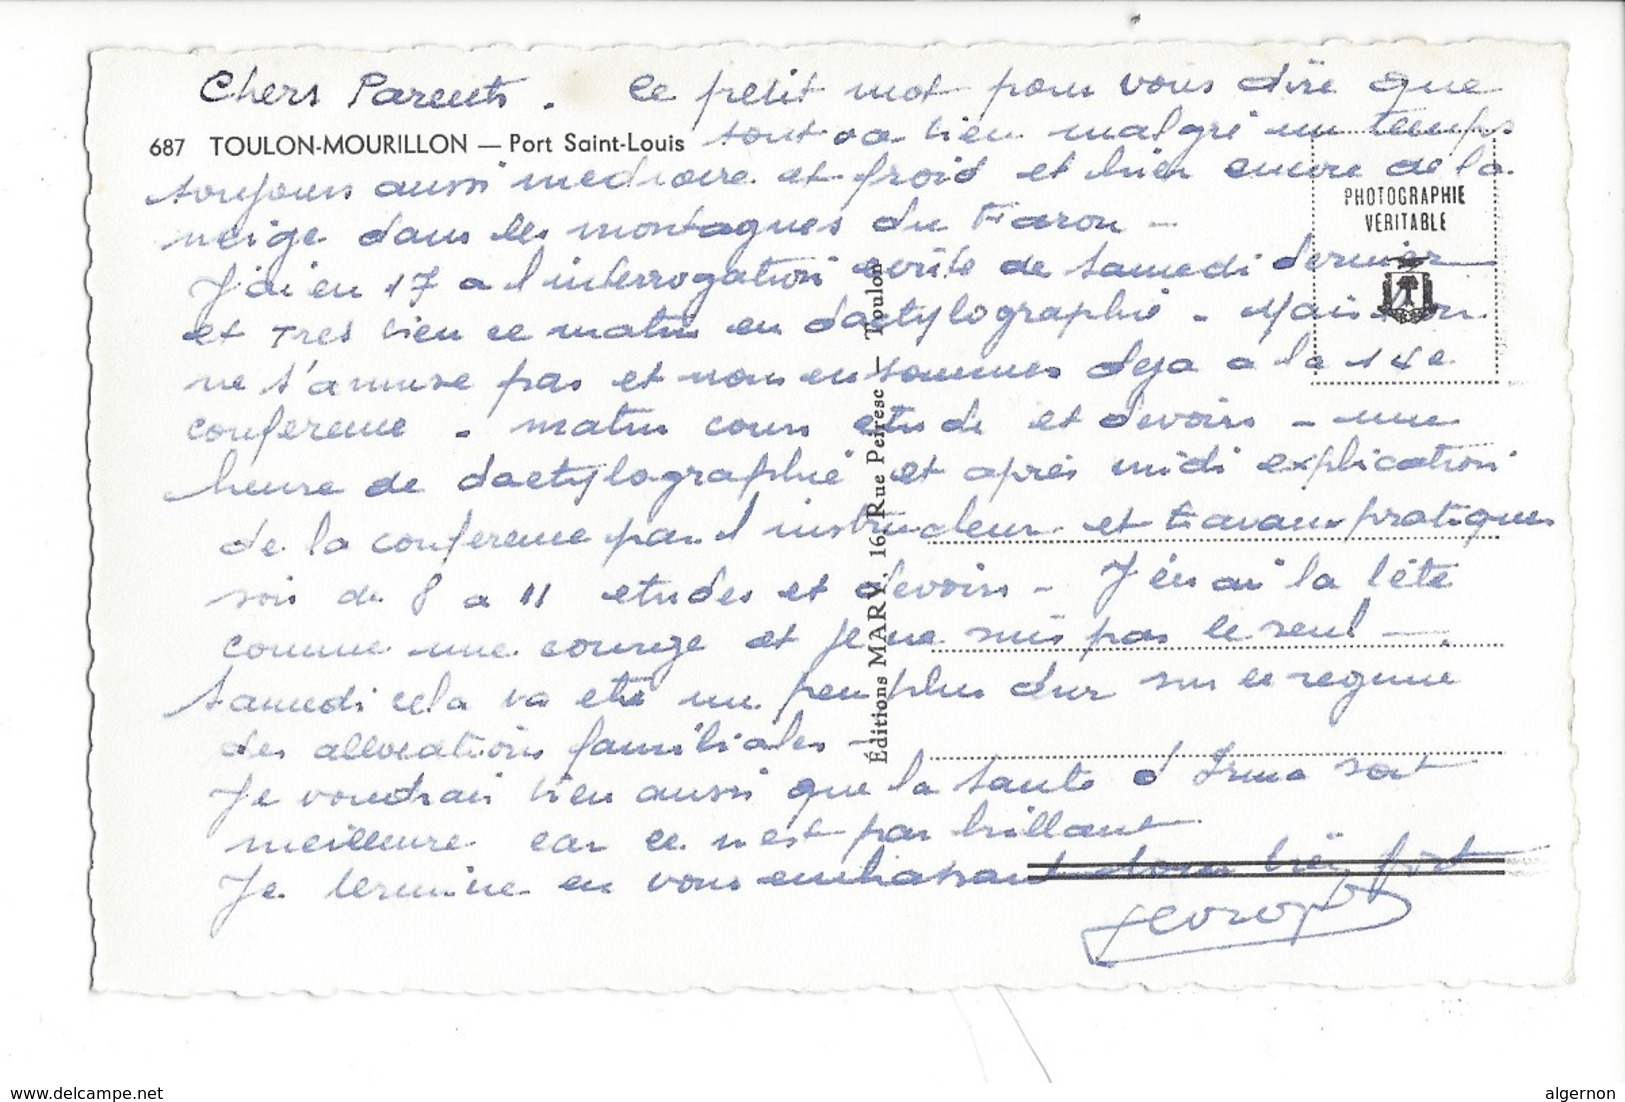 Chers Parents. Ce petit mot pour vous dire que
687 TOULON-MOURILLON — Port Saint-Louis
tout va bien malgré un temps
toujours aussi mediocre et froid et hier encore de la
neige dans les montagnes du Faron —
J'ai eu 17 a l interrogation ecrite de samedi dernier
et Tres bien ce matin en dactylographie - Mais on
ne s'amuse pas et nous en sommes deja a la 14e
conference - matin cours etude et devoirs - une
heure de dactylographie et après midi explication
de la conference par l instructeur et travaux pratiques
soir de 8 a 11 etudes et devoirs - J'en ai la tête
comme une courge et je ne suis pas le seul —.
Samedi cela va etre un peu plus dur sur le regime
des allocations familiales —
Je voudrais bien aussi que la santé d Irma soit
meilleure car ce n est pas brillant
Je termine en vous embrassant tous très fort
PHOTOGRAPHIE
VERITABLE
Éditions MARY, 16, Rue Peiresc — Toulon
delcampe.net
algernon